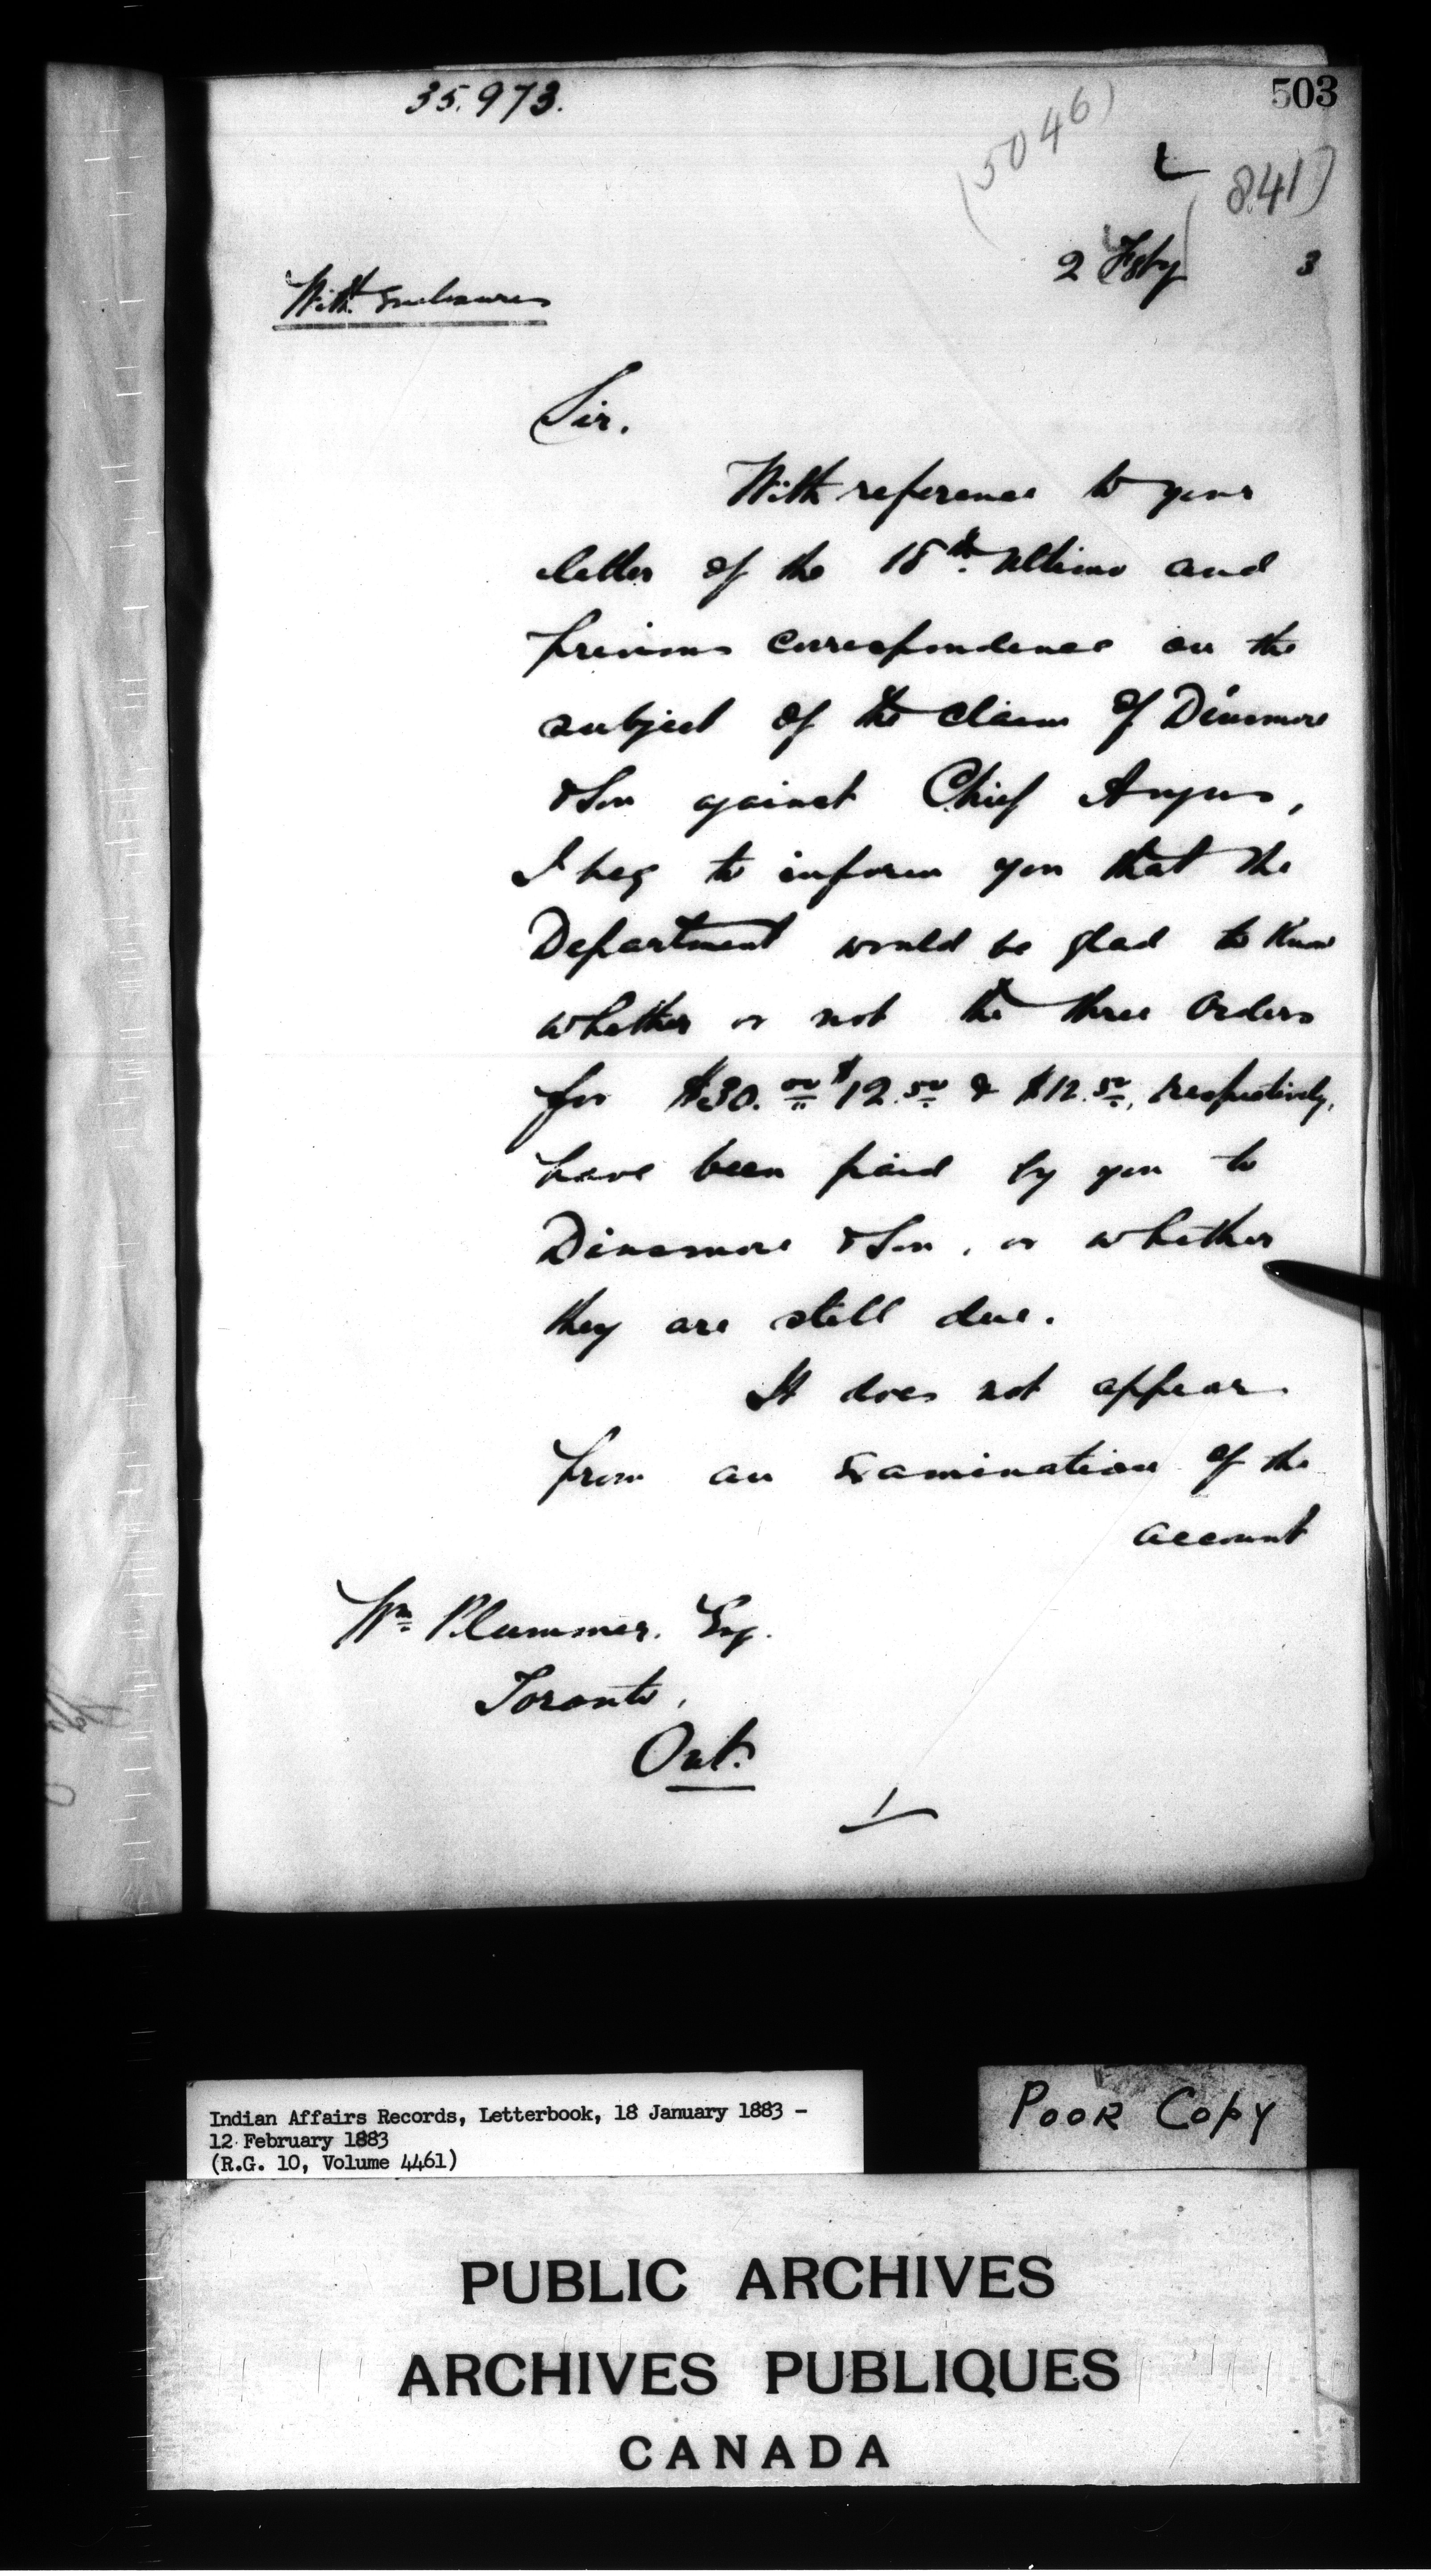 35.973.
503
(5046)
(841)
2 Feby 3
With enclosures
Sir.
With reference to your
letter of the 18th. ultimo and
previous correspondence on the
subject of the claim of Dinsmore
& Son against Chief Angus,
I beg to inform you that the
Department would be glad to know
whether or not the three orders
for $30.00 $12.50 & $12.50, respectively,
have been paid by you to
Dinsmore & Son, or whether
they are still due.
It does not appear
from an examination of the
account
Wm Plummer. Esq.
Toronto,
Ont.
Indian Affairs Records, Letterbook, 18 January 1883 -
12 February 1883
(R.G. 10, Volume 4461)
POOR COPY
PUBLIC ARCHIVES
ARCHIVES PUBLIQUES
CANADA